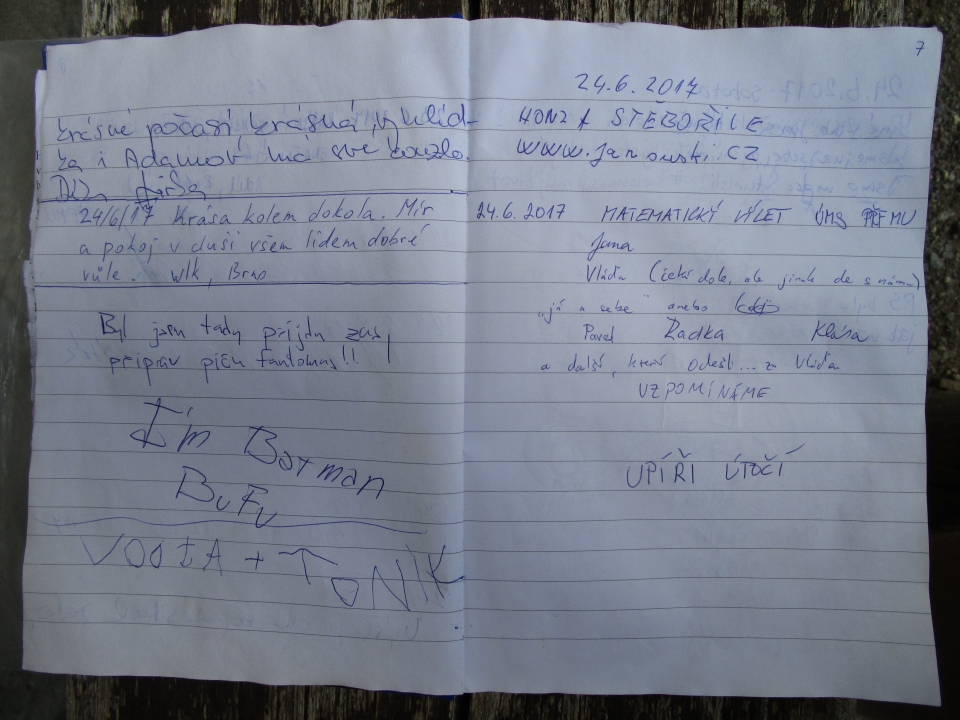 krásné počasí krásná vyhlíd-
ka i Adamov má své kouzlo.
24/6/17 Krása kolem dokola. Mír
a pokoj v duši všem lidem dobré
vůle. wlk, Brno
Byl jsem tady príjdu zas,
priprav píču fantomas!!
I'm Batman
BuFu
VOJTA + TONIK
7
24.6.2017
HONZA STĚBOŘICE
www.janowski.CZ
24.6.2017 MATEMATICKÝ VÝLET ÚMS PŘF MU
Jana
Vláďa (čeká dole, ale jinak de s náma)
„já a sebe" anebo
Pavel Radka Klára
a další, kteří odešli... za Vláďou
VZPOMÍNÁME
UPÍŘI ÚTOČÍ